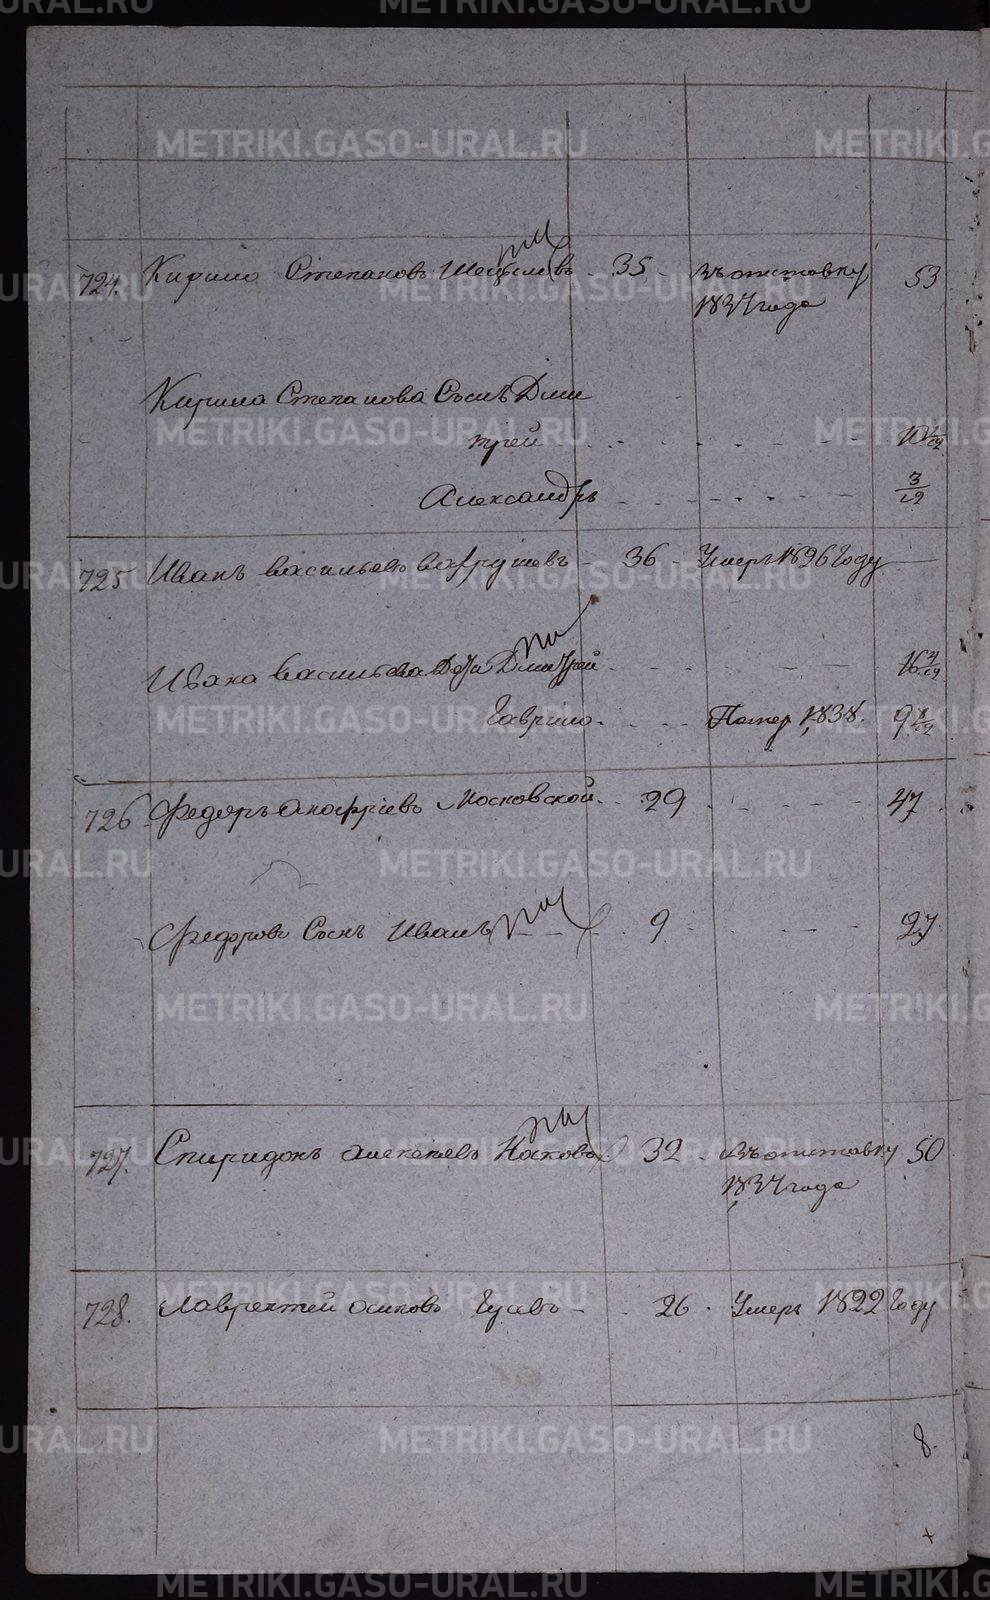 724. Кирило Степановъ 35 въ отставку 53
1834 года
Кирила Степанова Сынъ Дми
трей 10 1/12
Александръ 3/12
725 Иванъ васильевъ вахрушевъ 36 Умеръ 1826 Году
Ивана васильева Дети Дмитрей 16 4/12
Гаврило Помер 1838.
726 Федоръ Анофріевъ Московской 29 47
Федорова Сынъ Иванъ 9 27
727. Спиридонъ Алексеевъ Носковъ 32 въ отставку 50
1834 года
728. Лаврентей осиповъ Гусевъ 26 Умеръ 1822 Году
8.
METRIKI.GASO-URAL.RU